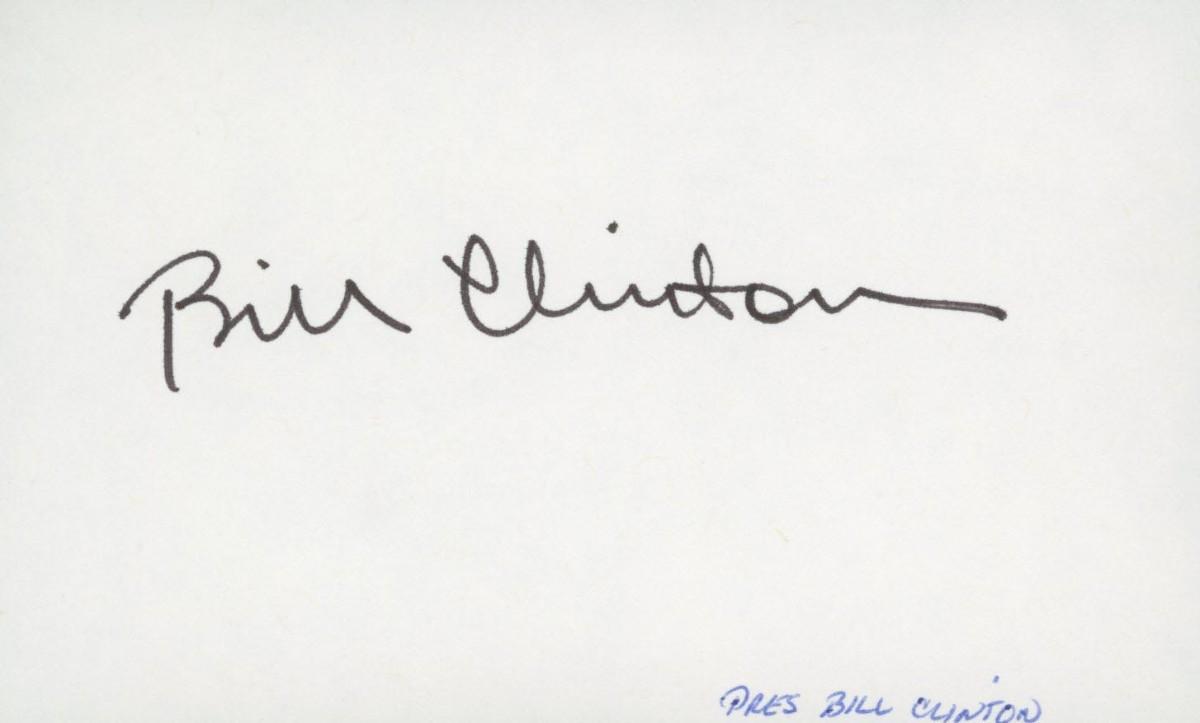 Bill Clinton
PRES BILL CLINTON